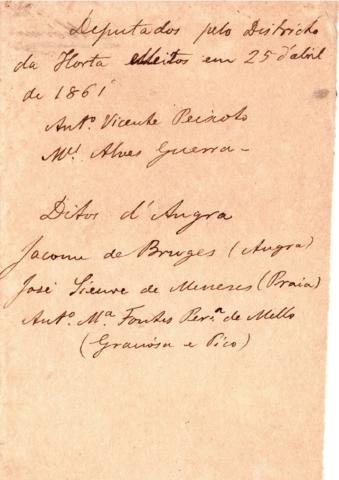 Deputados pelo Districto
da Horta elleitos em 25 d'abril
de 1861
Antº. Vicente Peixoto
Mel. Alves Guerra -
Ditos d'Angra
Jacome de Bruges (Angra)
José Sieuve de Meneses (Praia)
Antº. Mª. Fontes Perª. de Mello
(Graciósa e Pico)